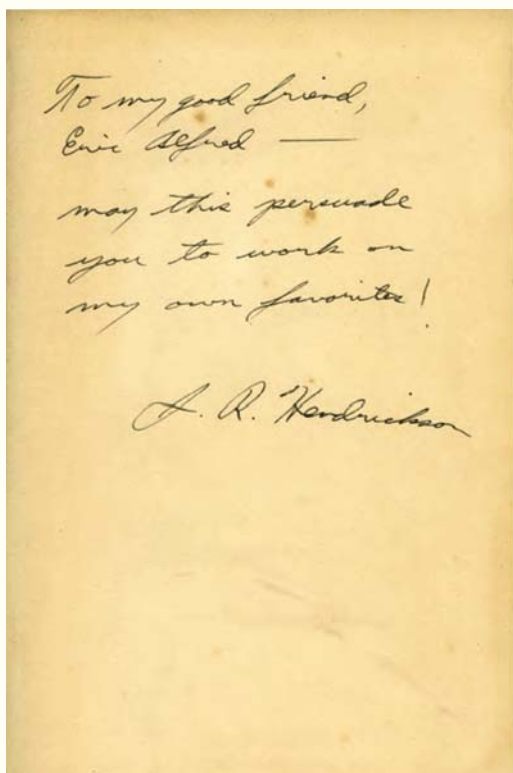 To my good friend,
Eric Alfred —
may this persuade
you to work on
my own favorites!
J. R. Hendrickson